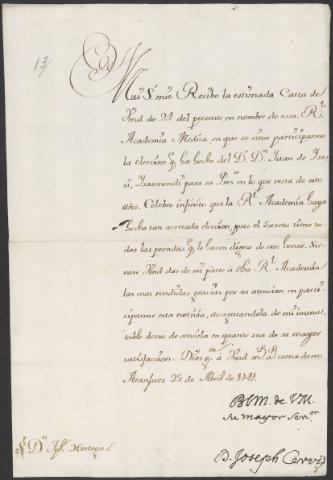 13
Mui Sr. mio. Recibo la estimada Carta de
Vmd de 24 del presente en nombre de essa Rl.
Academia Medica, en que se sirve participarme
la eleccion q ha hecho del D. Dn. Juan de
para su Preste. en lo que resta de este
año. Celebro infinito que la Rl. Academia haya
hecho tan acertada eleccion, pues el Sugeto tiene to
das las prendas q le hacen digno de este honor. Sir
vase Vmd dar de mi parte à essa Rl. Academia
las mas rendidas gracias por su atencion en parti
ciparme esta noticia, asegurandola de mi inmu
table deseo de servirla en quanto sea de su mayor
satisfaccion. Dios gde. a Vmd como deseo.
Aranjuez 29 de Abril de 1741.
BLM. de VM.
su mayor Seror.
D. Joseph Cervi
Sr. Dn. Jph. Hortega